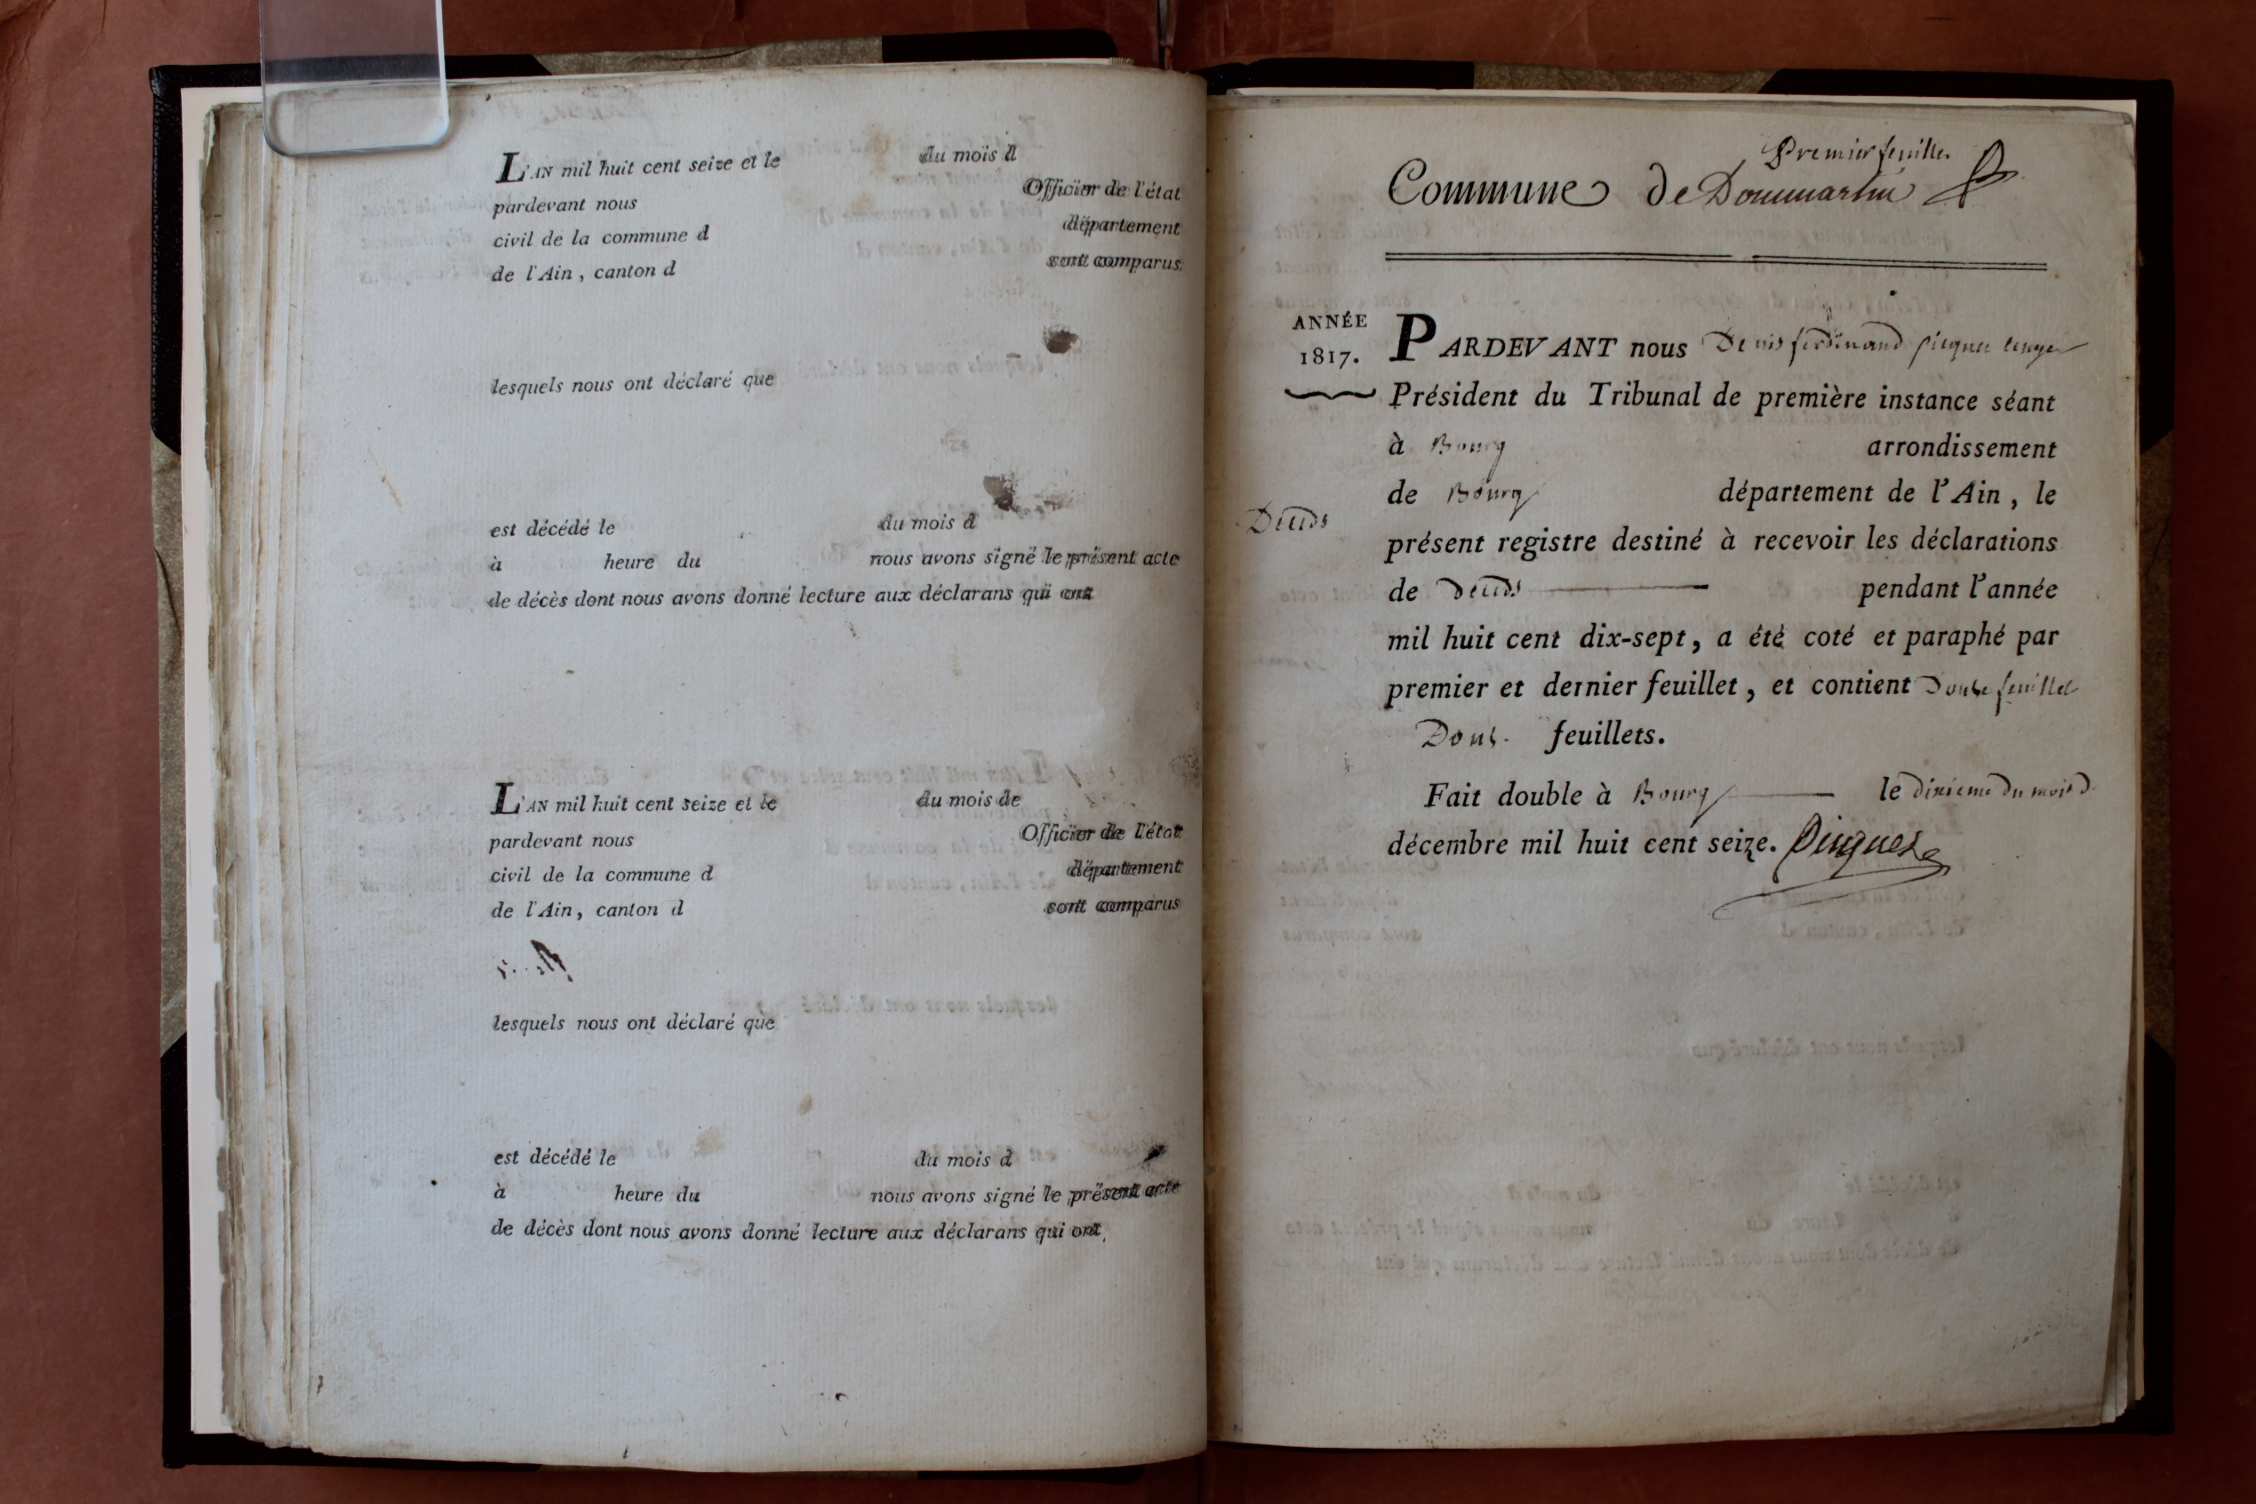 L'AN mil huit cent seize et le du mois d
pardevant nous Officier de l'état
civil de la commune d département
de l'Ain, canton d sont comparus
lesquels nous ont déclaré que
est décédé le du mois d
à heure du nous avons signé le présent acte
de décès dont nous avons donné lecture aux déclarans qui ont
L'AN mil huit cent seize et le du mois de
pardevant nous Officier de l'état
civil de la commune d département
de l'Ain, canton d sont comparus
lesquels nous ont déclaré que
est décédé le du mois d
à heure du nous avons signé le présent acte
de décès dont nous avons donné lecture aux déclarans qui ont
Premier feuillet
Commune de Dommartin
ANNÉE
1817.
PARDEVANT nous Denis ferdinand picquet
Président du Tribunal de première instance séant
à Bourg arrondissement
de Bourg département de l'Ain, le
Décès
présent registre destiné à recevoir les déclarations
de décès pendant l'année
mil huit cent dix-sept, a été coté et paraphé par
premier et dernier feuillet, et contient Douze feuillet
Douz feuillets.
Fait double à Bourg le dixieme du mois d
décembre mil huit cent seize. Picquet